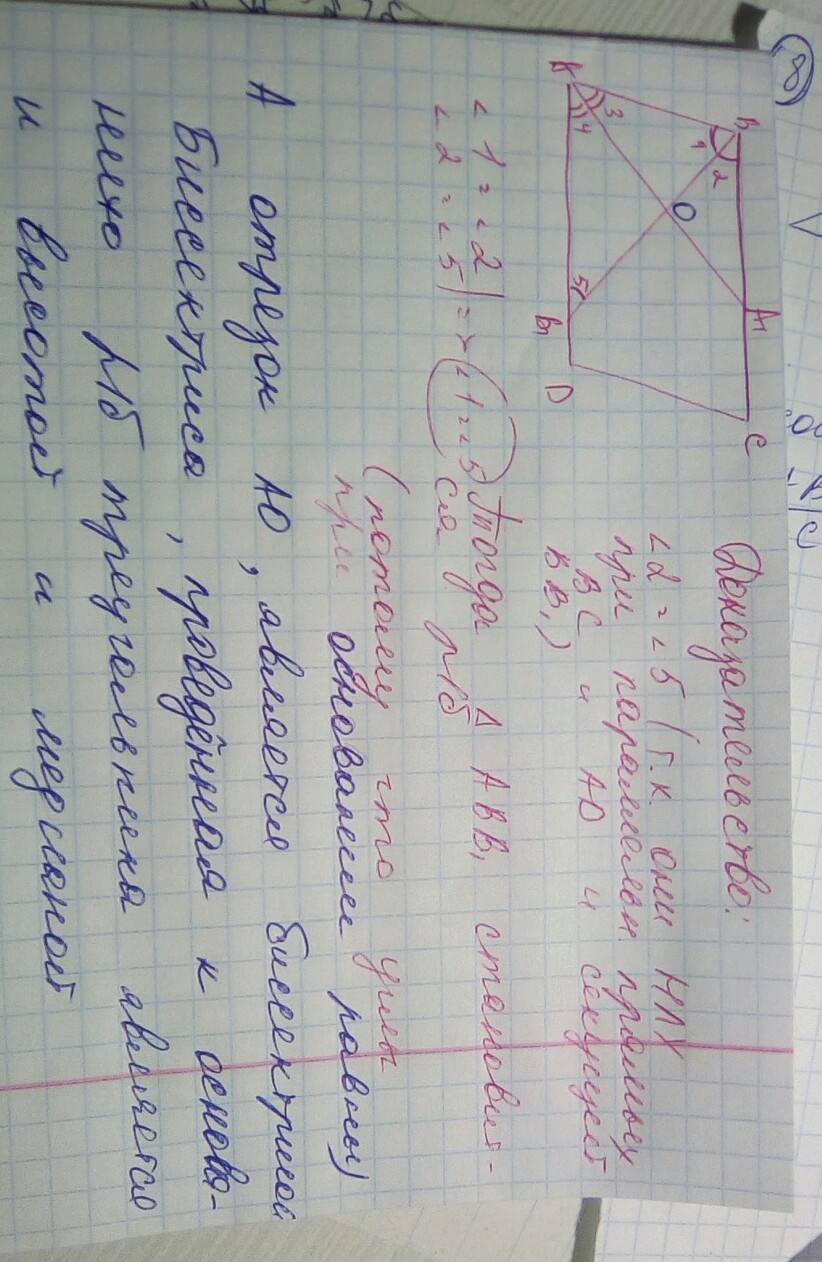 8
B
A1
C
1
2
O
3
4
5
A
B1
D
Доказательство:
∠2 = ∠5 (т.к. они НЛУ
при параллельн. прямых
BC и AD и секущей
BB1)
∠1 = ∠2
∠2 = ∠5 | => ∠1=∠5 Тогда Δ ABB1 становит-
ся р/б
(потому что углы
при основании равны)
А отрезок AO, является биссектрисой
Биссектриса, проведённая к основа-
нию р/б треугольника является
и высотой и медианой